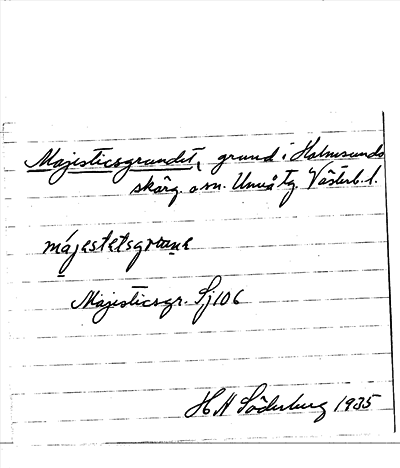 Majesticsgrundet, grund i Holmsunds
skärg. o sn. Umeå tg. Västerb. l.
majestetsgrune
Majesticsgr. Sj 106
H N Söderberg 1935